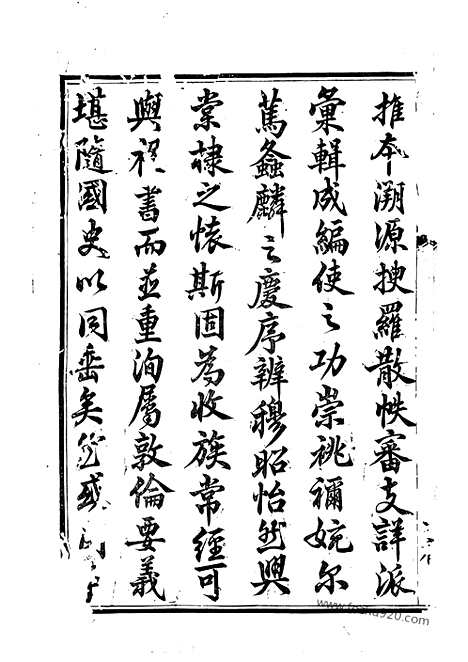 推本溯源搜羅散帙審支詳派
彙輯成編使之功崇祧禰婉尔
篤螽麟之慶序辨穆昭怡然興
棠棣之懐斯固為收族常經可
與禮書而並重洵属敦倫要義
堪隨國史以同垂矣然或
www.fzsha920.com